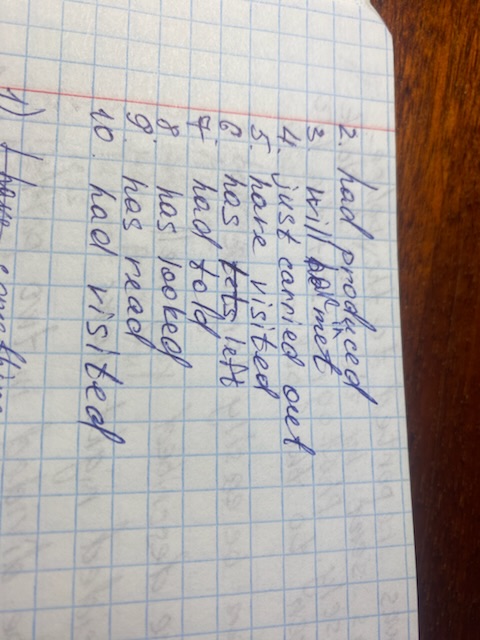 2. had produced
3 will met
4. just carried out
5. have visited
6 has left
7. had told
8 has looked
9. has read
10. had visited
1)